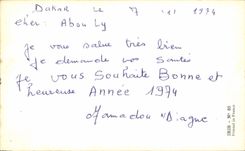 Dakar le 7 1974
cher: Abou Ly
je vous salue très bien
je demande vos Santés
je vous Souhaite Bonne et
heureuse Année 1974
Mamadou N'Diagne